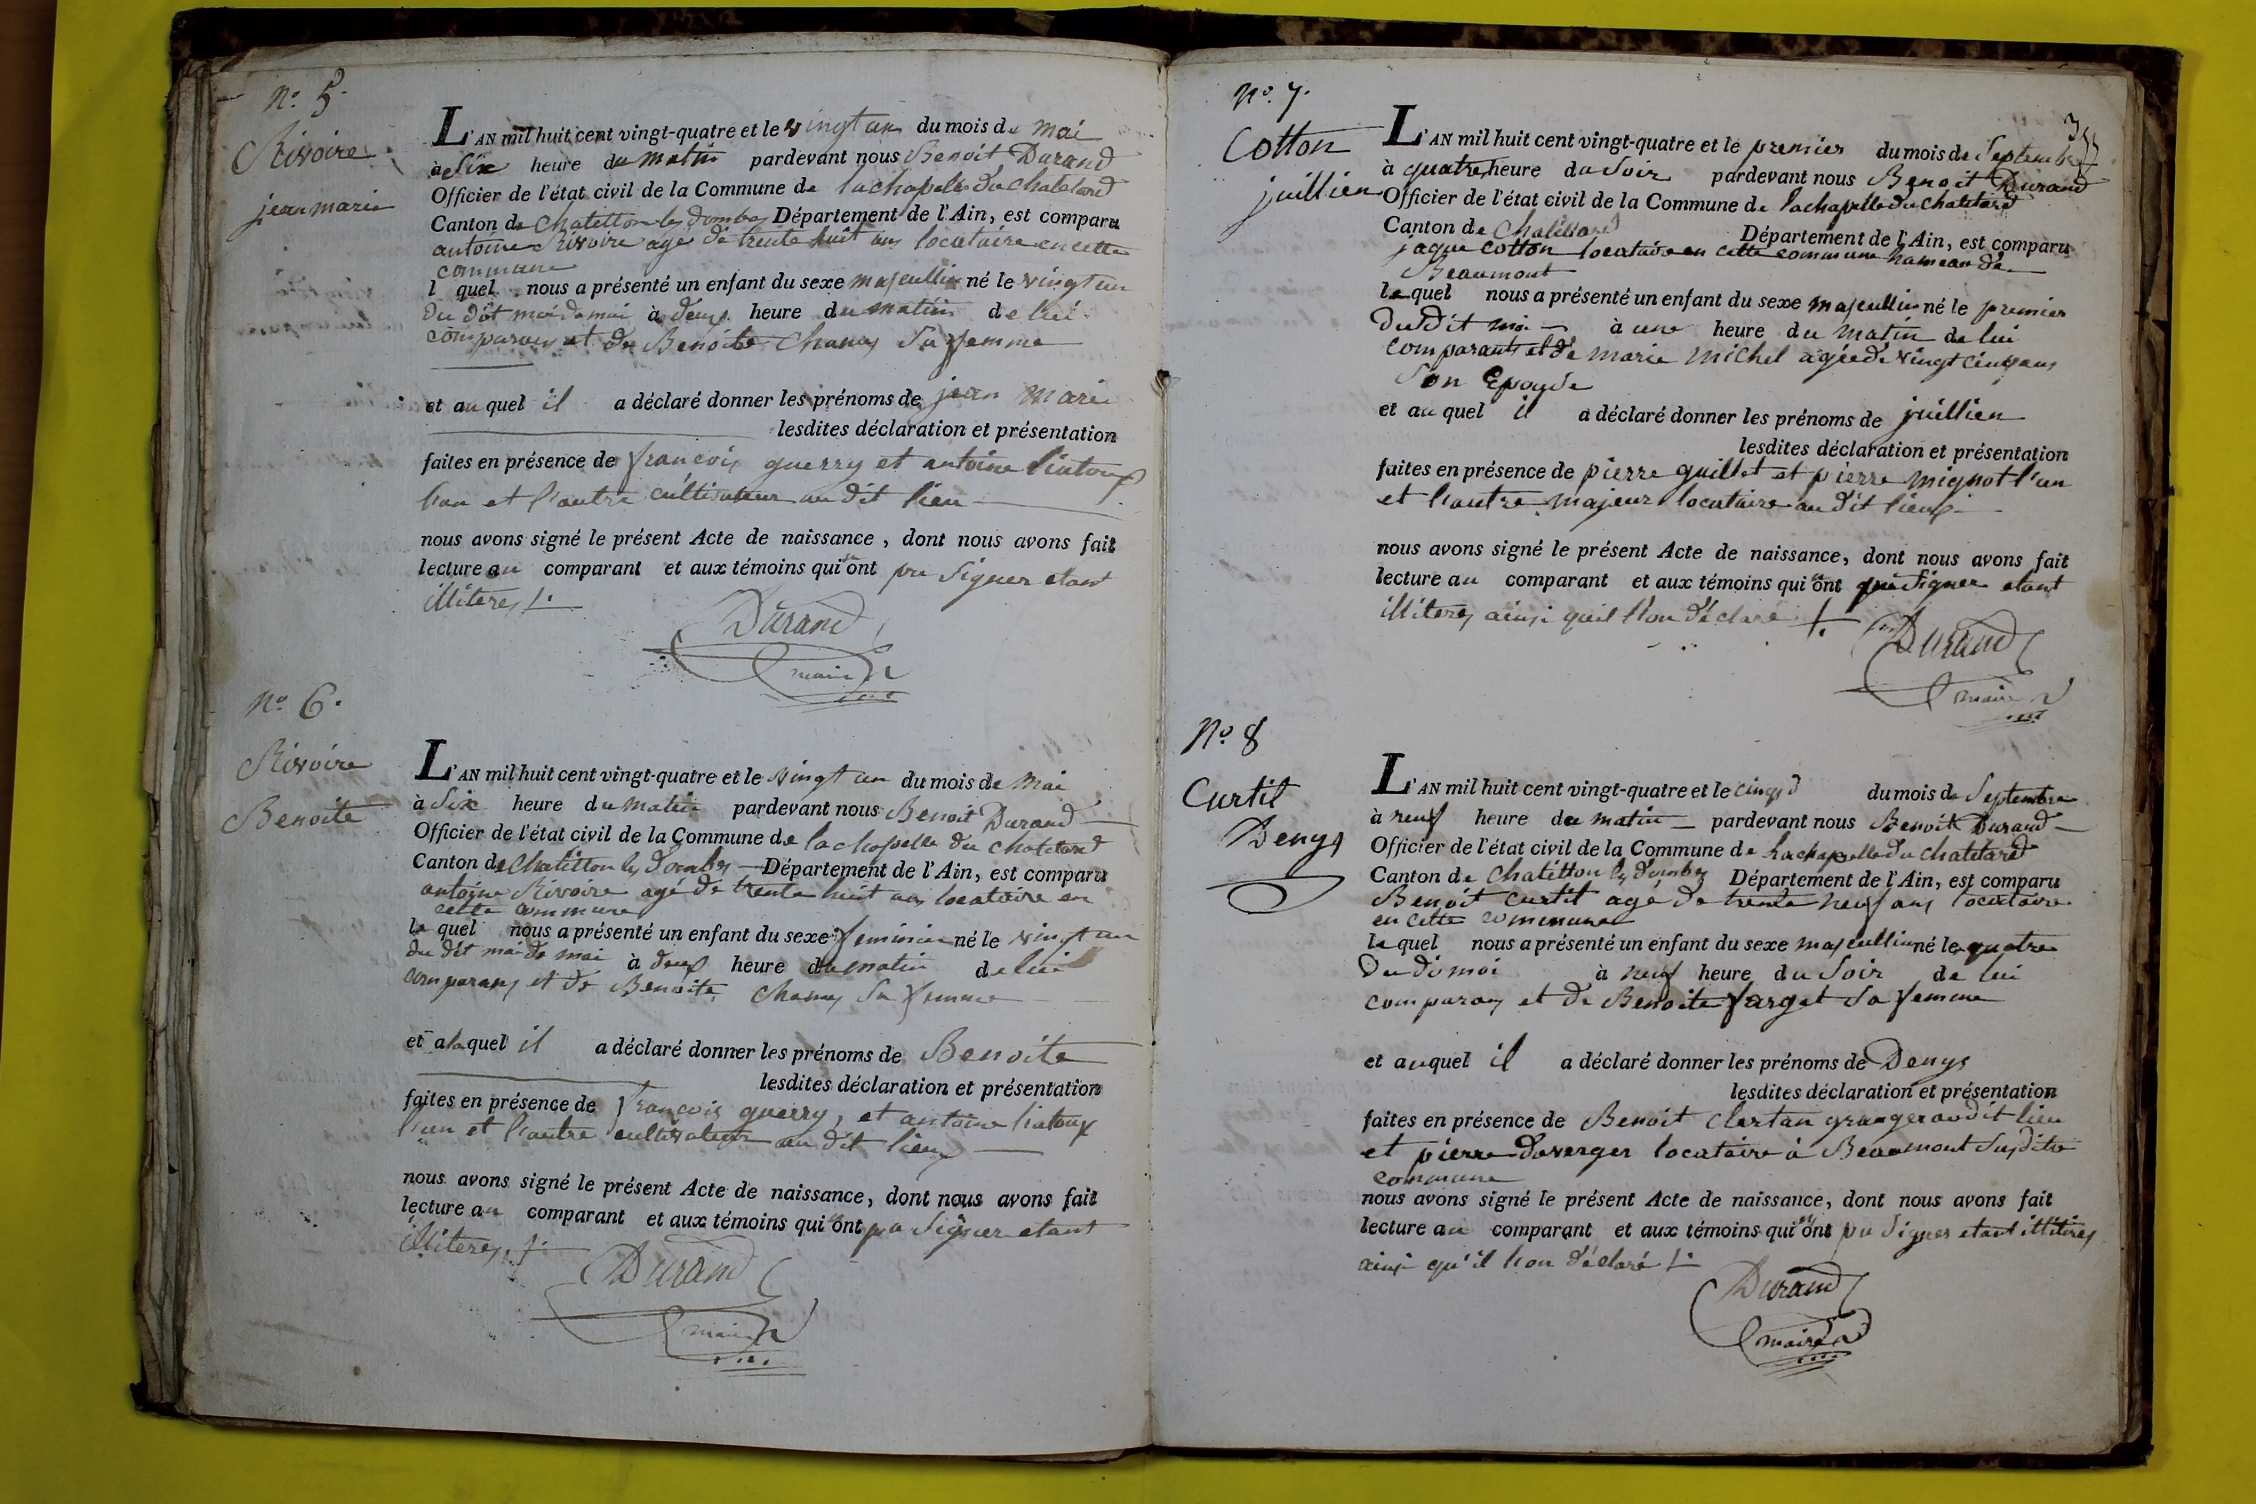 N.º 5.
Rivoire
jean marie
L'AN mil huit cent vingt-quatre et le vingt un du mois de mai
à six heure du matin pardevant nous Benoit Durand
Officier de l'état civil de la Commune de lachapelle du chatelard
Canton de chatillon les dombes Département de l'Ain, est comparu
antoine Rivoire agé de trente huit ans locataire en cette
commune
l quel nous a présenté un enfant du sexe masculin né le vingt un
du dit moi de mai à deux heure du matin de lui
comparans et de Benoite Chanay sa femme
et au quel il a déclaré donner les prénoms de jean marie
lesdites déclaration et présentation
faites en présence de françois guerry et antoine liatoux
l'un et l'autre cultivateur au dit lieu
nous avons signé le présent Acte de naissance, dont nous avons fait
lecture au comparant et aux témoins qui n'ont pu signer etant
illiteres /.
Durand
maire
N.º 6.
Rivoire
Benoite
L'AN mil huit cent vingt-quatre et le vingt un du mois de mai
à six heure du matin pardevant nous Benoit Durand
Officier de l'état civil de la Commune de lachapelle du chatelard
Canton de chatillon les dombes Département de l'Ain, est comparu
antoine Rivoire agé de trente huit ans locataire en
cette commune
le quel nous a présenté un enfant du sexe feminin né le vingt un
du dit moi de mai à deux heure du matin de lui
comparans et de Benoite chanay sa femme
et a la quel il a déclaré donner les prénoms de Benoite
lesdites déclaration et présentation
faites en présence de françois guerry, et antoine liatoux
l'un et l'autre cultivateur au dit lieux
nous avons signé le présent Acte de naissance, dont nous avons fait
lecture au comparant et aux témoins qui n'ont pu signer etant
illiteres /.
Durand
maire
N.º 7.
Cotton
juillien
L'AN mil huit cent vingt-quatre et le premier du mois de septembre
à quatre heure du soir pardevant nous Benoit Durand
Officier de l'état civil de la Commune de lachapelle du chatelard
Canton de Chatillon Département de l'Ain, est comparu
jaque cotton locataire en cette commune hameau de
Beaumont
le quel nous a présenté un enfant du sexe masculin né le premier
dudit moi à une heure du matin de lui
comparants et de marie michel agée de vingt cinq ans
son Epouse
et au quel il a déclaré donner les prénoms de juillien
lesdites déclaration et présentation
faites en présence de pierre guillet et pierre mignot l'un
et l'autre majeur locataire au dit lieux
nous avons signé le présent Acte de naissance, dont nous avons fait
lecture au comparant et aux témoins qui n'ont pu signer etant
illiteres ainsi quil l'lon déclaré /.
Durand
maire
N.º 8
Curtil
Denys
L'AN mil huit cent vingt-quatre et le cinq du mois de septembre
à neuf heure du matin pardevant nous Benoit Durand
Officier de l'état civil de la Commune de lachapelle du chatelard
Canton de chatillon les dombes Département de l'Ain, est comparu
Benoit curtil agé de trente neuf ans locataire
en cette commune
le quel nous a présenté un enfant du sexe masculin né le quatre
du di moi à neuf heure du soir de lui
comparans et de Benoite farget sa femme
et au quel il a déclaré donner les prénoms de Denys
lesdites déclaration et présentation
faites en présence de Benoit clertan granger au dit lieu
et pierre duverger locataire à Beaumont susdite
commune
nous avons signé le présent Acte de naissance, dont nous avons fait
lecture au comparant et aux témoins qui n'ont pu signer etant illiteres
ainsi qu'il l'on déclaré /.
Durand
maire